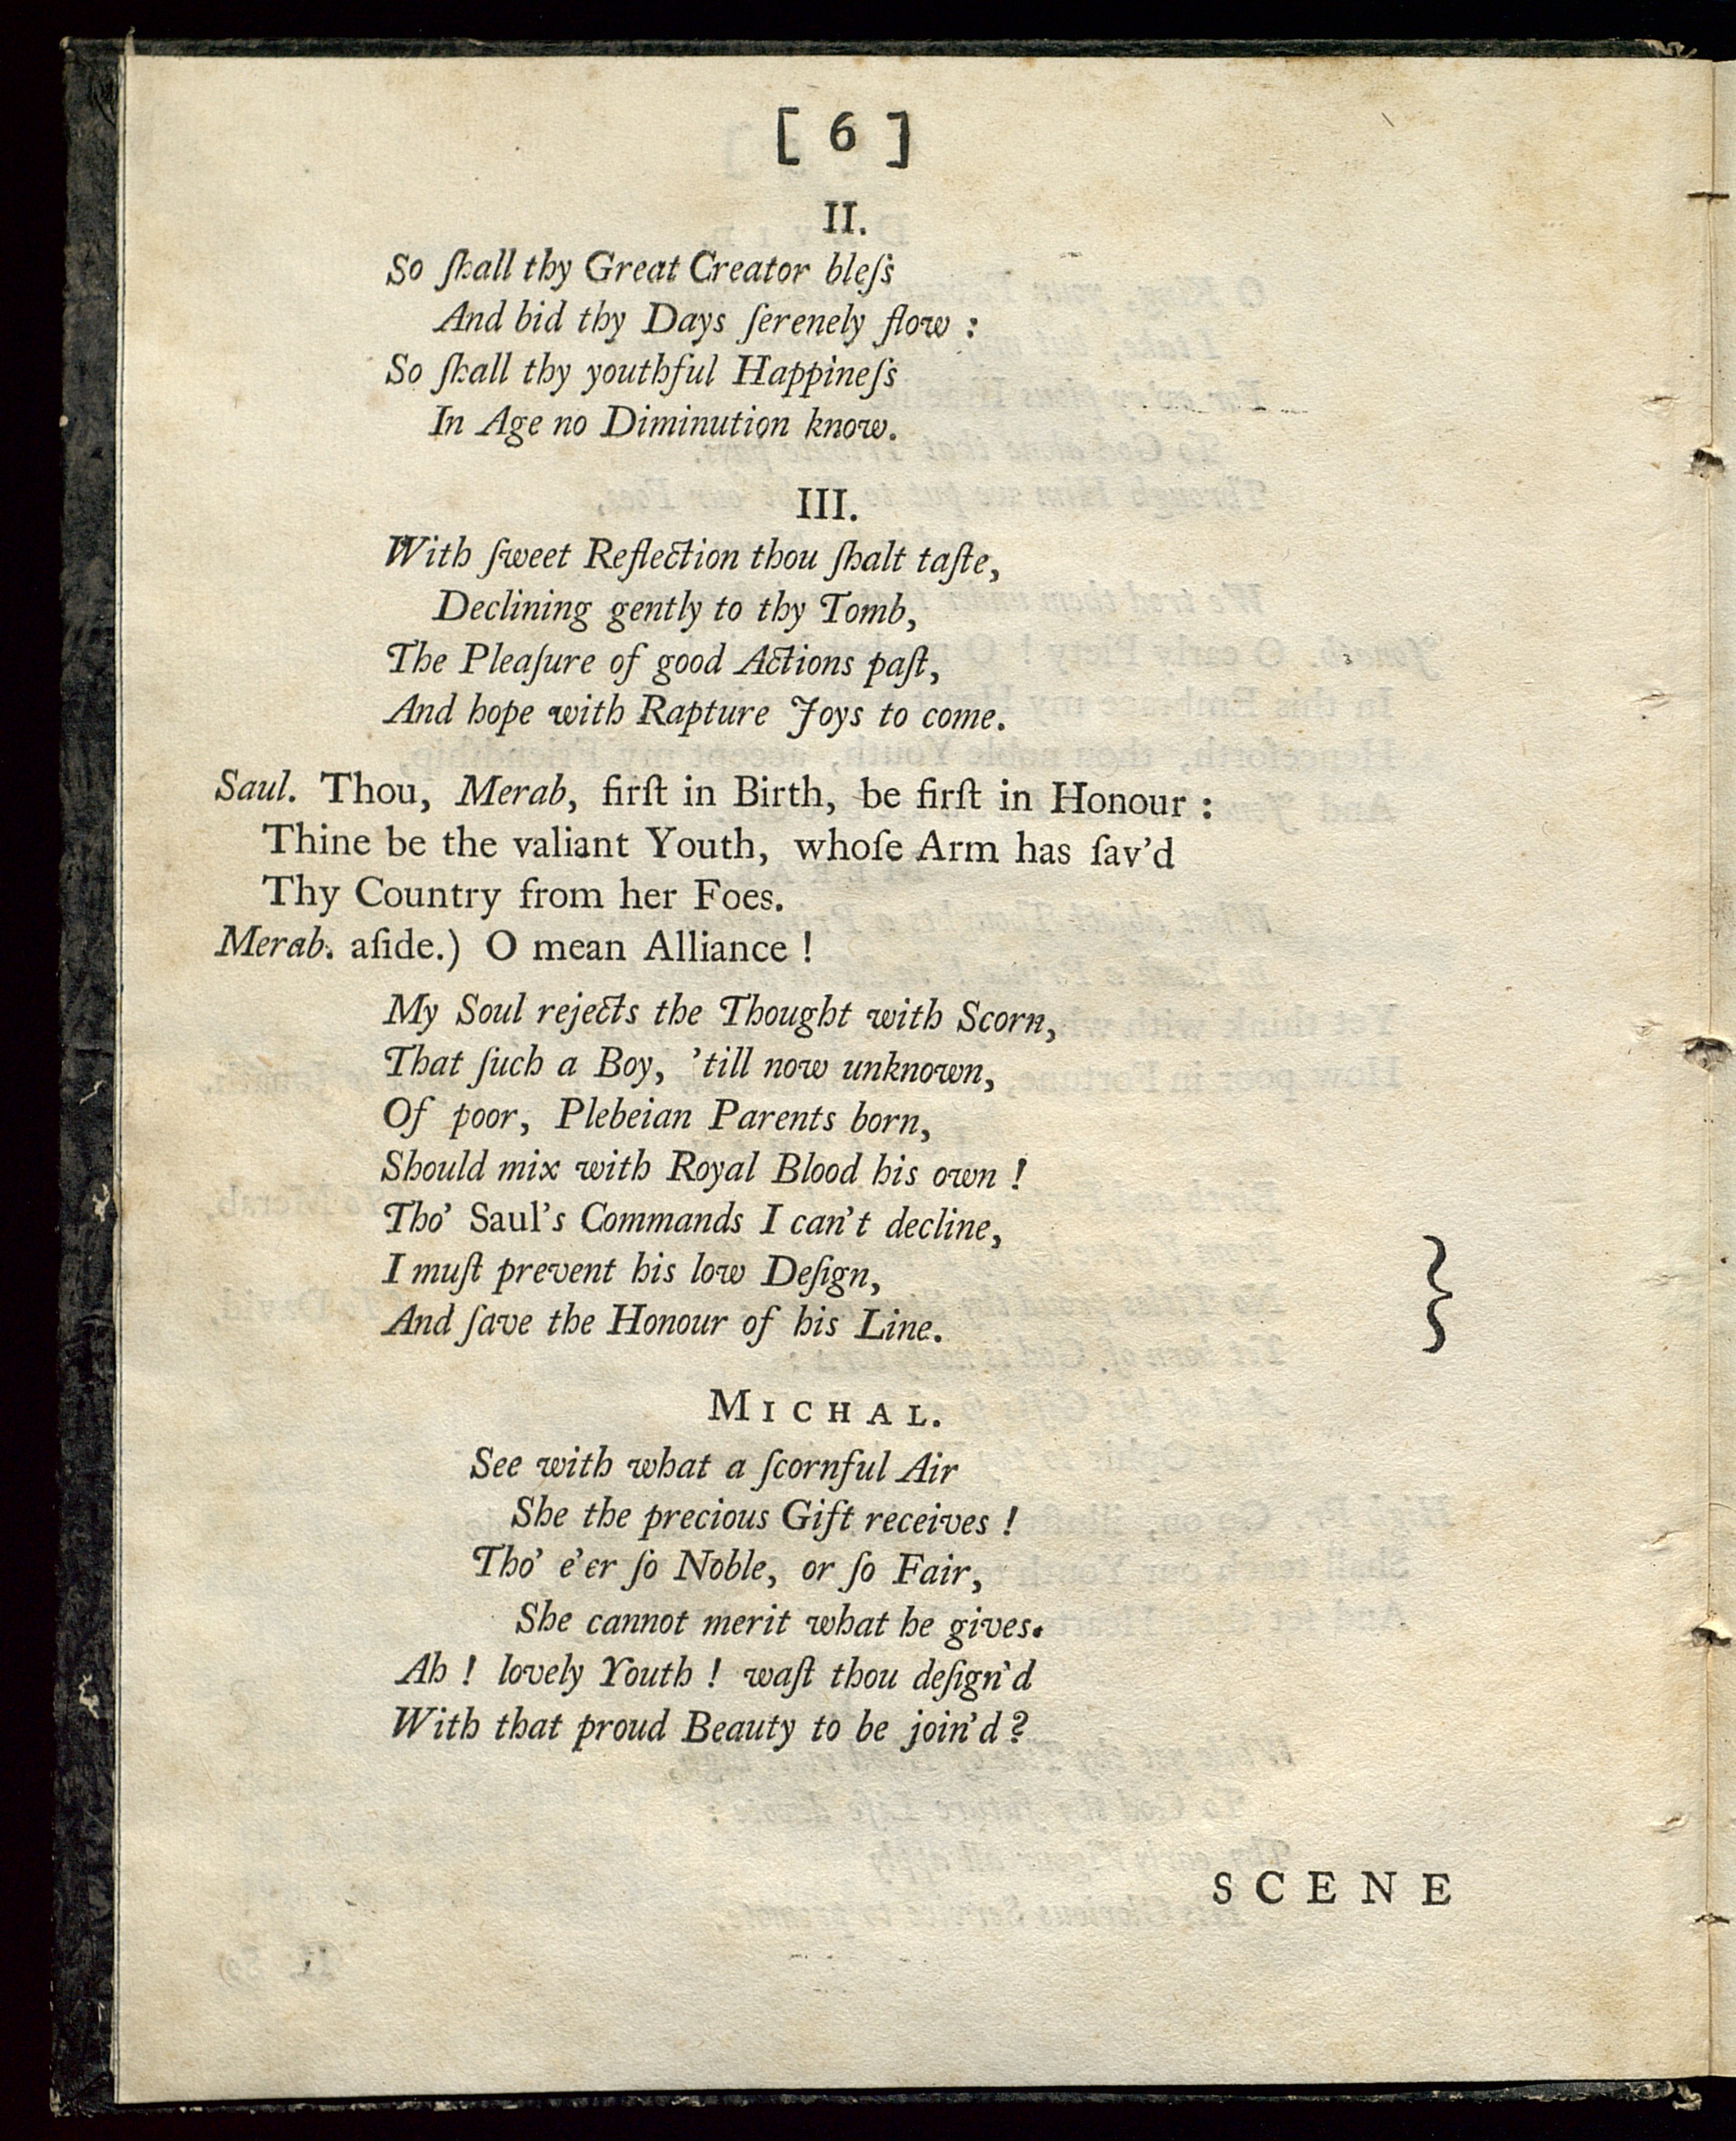 [ 6 ]
II.
So ſhall thy Great Creator bleſs
And bid thy Days ſerenely flow :
So ſhall thy youthful Happineſs
In Age no Diminution know.
III.
With ſweet Reflection thou ſhalt taſte,
Declining gently to thy Tomb,
The Pleaſure of good Actions paſt,
And hope with Rapture Joys to come.
Saul. Thou, Merab, firſt in Birth, be firſt in Honour :
Thine be the valiant Youth, whoſe Arm has ſav'd
Thy Country from her Foes.
Merab. aſide.) O mean Alliance !
My Soul rejects the Thought with Scorn,
That ſuch a Boy, 'till now unknown,
Of poor, Plebeian Parents born,
Should mix with Royal Blood his own !
Tho' Saul's Commands I can't decline,
I muſt prevent his low Deſign,
And ſave the Honour of his Line.
MICHAL.
See with what a ſcornful Air
She the precious Gift receives !
Tho' e'er ſo Noble, or ſo Fair,
She cannot merit what he gives.
Ah ! lovely Youth ! waſt thou deſign'd
With that proud Beauty to be join'd ?
SCENE